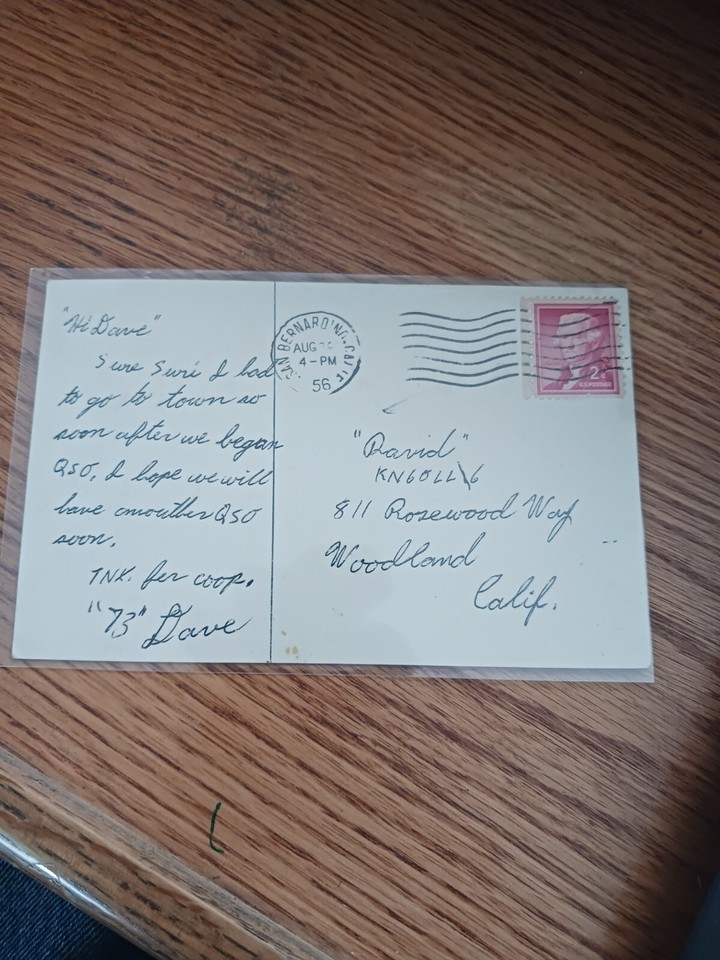 "Hi Dave"
Sure Suri I had
to go to town so
soon after we began
QSO. I hope we will
have anouther QSO
soon.
TNX. fer coop.
"73" Dave
SAN BERNARDINO, CALIF.
AUG
4-PM
56
2¢
U.S. POSTAGE
"David"
811 Rosewood Way
Woodland
Calif.